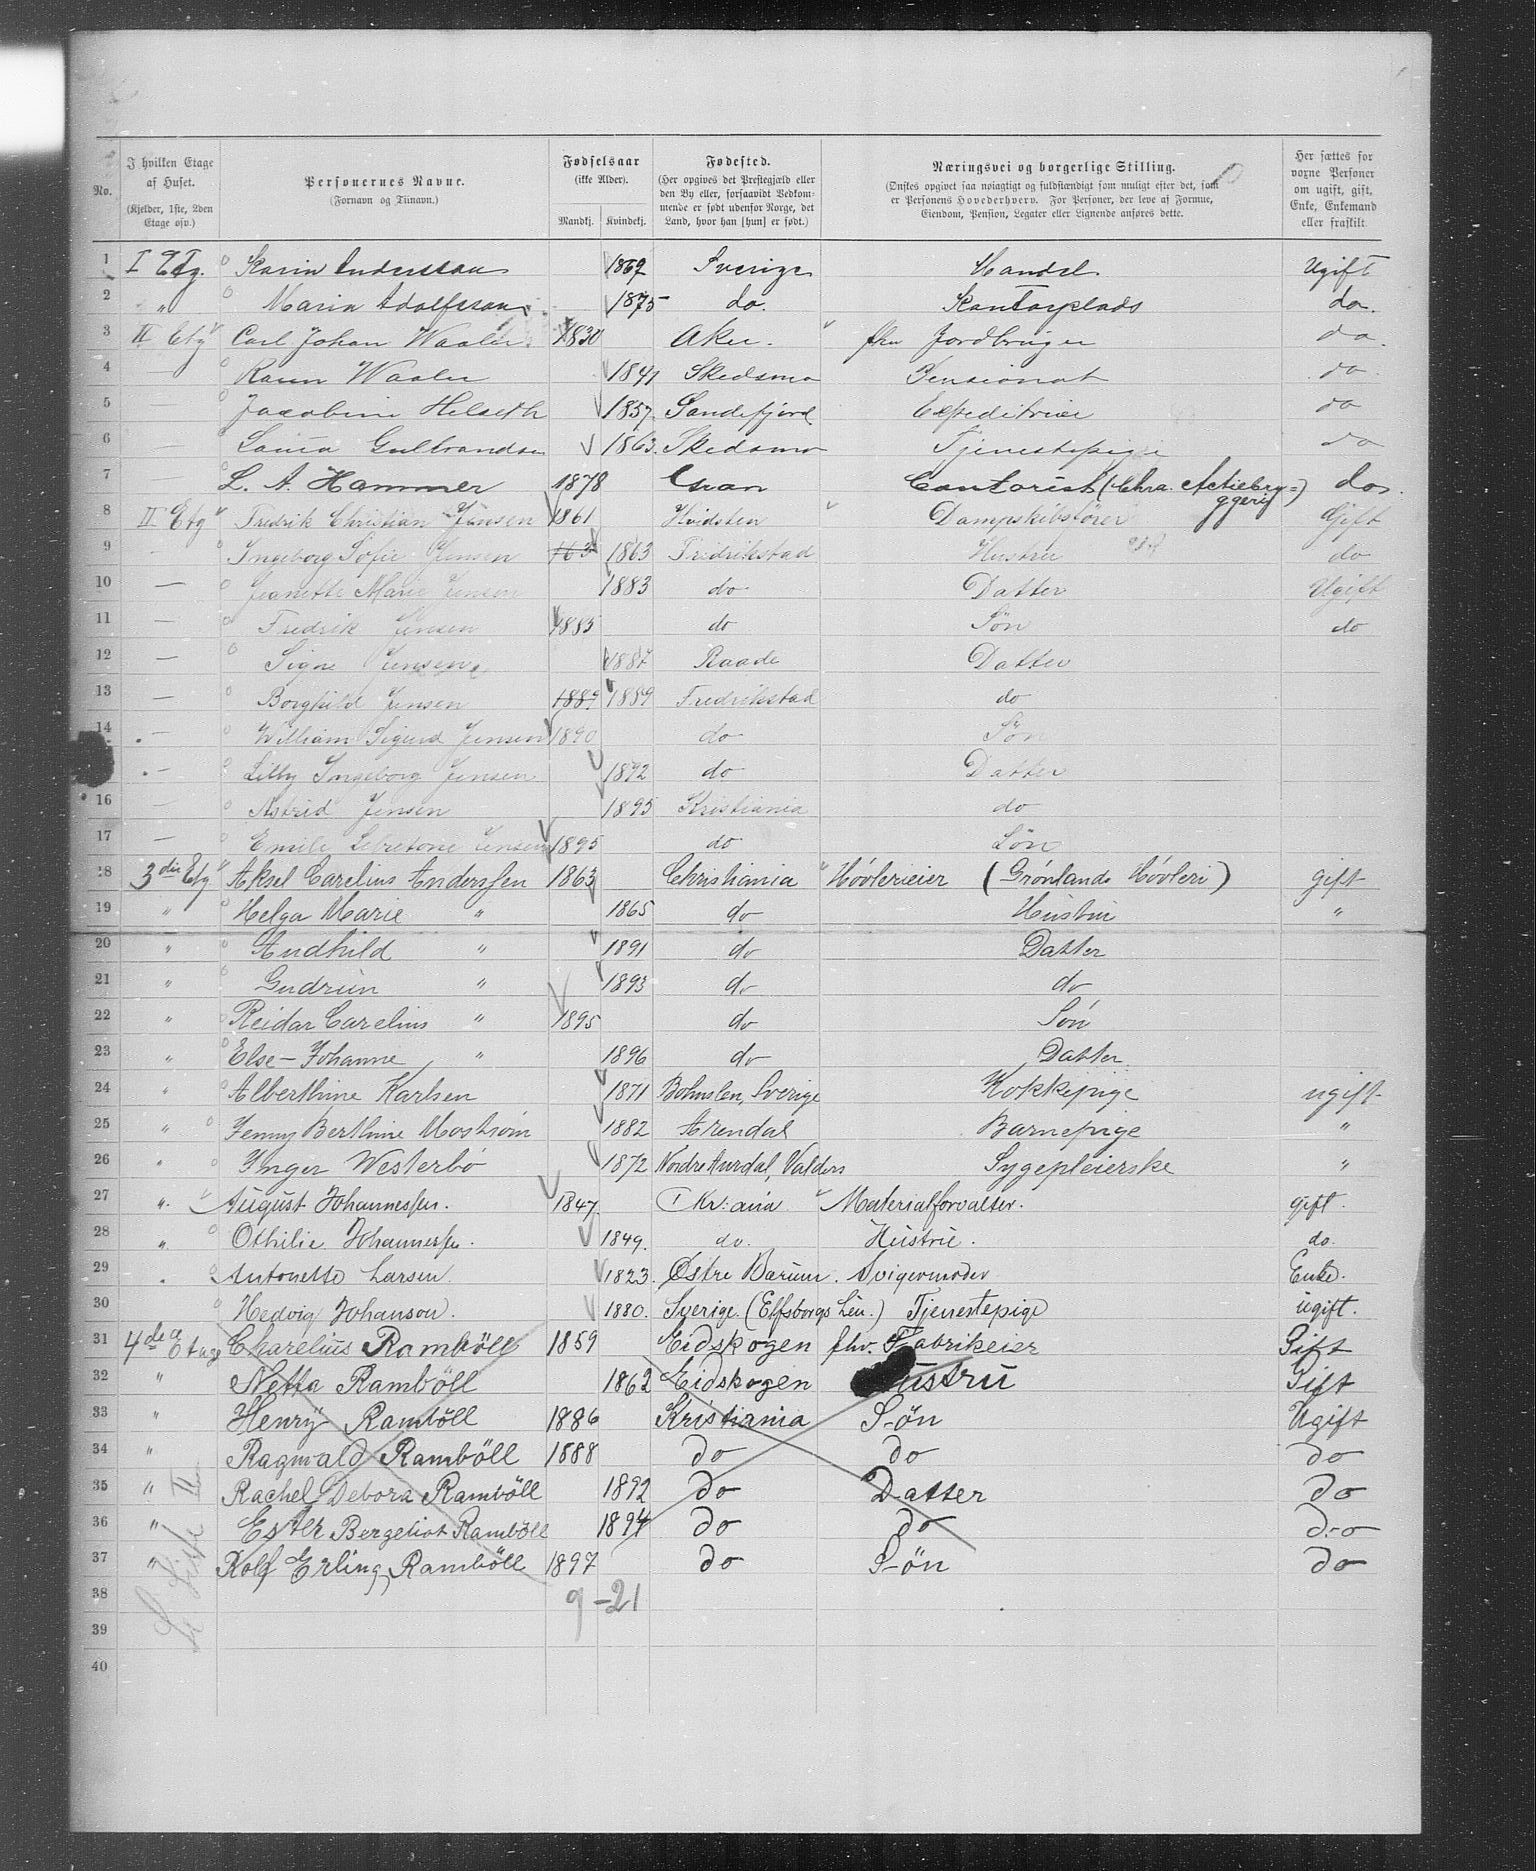 No.
I hvilken Etage af Huset.
(Kjelder, 1ste, 2den Etage osv.)
Personernes Navne.
(Fornavn og Tilnavn.)
Fødselsaar
(ikke Alder).
Mandkj. Kvindekj.
Fødested.
(Her opgives det Prestegjæld eller den By eller, forsaavidt Vedkommende er født udenfor Norge, det Land, hvor han [hun] er født.)
Næringsvei og borgerlige Stilling.
(Ønskes opgivet saa nøiagtigt og fuldstændigt som muligt efter det, som er Personens Hovederhverv. For Personer, der leve af Formue, Eiendom, Pension, Legater eller Lignende anføres dette.
Her sættes for voxne Personer om ugift, gift, Enke, Enkemand eller fraskilt.
1 I Etg. Karin Anderssan 1869 Sverige Handel. Ugift
2 " Maria Adolfsson 1875 do. do.
3 II Etg Carl Johan Waaler 1830 Aker. fhv Jordbruger do.
4 — Waaler 1841 Skedsmo Pensionat do.
5 — Jacobine Helseth 1857 Sandefjord Expeditrice do
6 — Gulbrandsen 1863. Skedsmo Tjenestepige do
7 — L. A. Hammer 1878 Gran Contorist (Chra. Actiebryggeri) do.
8 II Etg Fredrik Christian Jensen 1861 Hvidsten Dampskibsfører Gift
9 — Ingeborg Sofie Jensen 1863 Fridrikstad Hustru do
10 — Jeanette Marie Jensen 1883 do Datter Ugift
11 — Fredrik Jensen 1885 do Søn do
12 — Signe Jensen 1887 Raade Datter
13 — Borghild Jensen 1889 1889 Fredrikstad do
14 — William Sigurd Jensen 1890 do Søn
— Lilly Ingeborg Jensen 1892 do Datter
16 — Astrid Jensen 1895 Kristiania do
17 — Emile Jensen 1895 do Søn
18 3die Etg Aksel Carelius Anderssen 1863 Christiania Høvlerieier (Grønlands Høvleri) gift
19 " Helga Marie " 1865 do Hustru "
20 " Audhild " 1891 do Datter
21 " Gudrun " 1893 do do
22 " Reidar Carelius " 1895 do Søn
23 " Else-Johanne " 1896 do Datter
24 " Alberthine Karlsen 1871 Bohuslen, Sverige Kokkepige ugift
25 " Jenny Berthine Mostrøm 1882 Arendal Barnepige "
26 " Inger Westerbø 1872 Nordre Aurdal, Valders Sygepleierske "
27 " August Johannessen. 1847 Kr:ania Materialforvalter. gift.
28 " Othilie Johannessen. 1849. do. Hustrue. do.
29 " Antonette Larsen. 1823. Østre Bærum. Svigermoder Enke.
30 Hedvig Johanson. 1880. Sverige. (Elfsborgs Len.) Tjenestepige ugift.
31 4de Etage Charelius Ramböll 1859 Eidskogen fhv. Fabrikeier Gift
32 " Netta Ramböll 1862 Eidskogen Hustru Gift
33 " Henry Ramböll 1886 Kristiania Søn Ugift
34 " Ragnvald Ramböll 1888 do do do
35 " Rachel Debora Ramböll 1892 do Datter do
36 " Ester Bergeliot Ramböll 1894 do do do
37 " Rolf Erling Ramböll 1897 do Søn do
38 9-21
39
40
Se Liste II